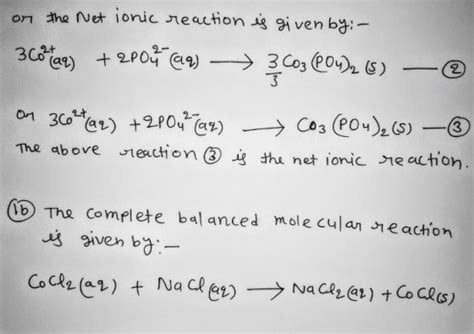 or the Net ionic reaction is given by:-
3Co²⁺(aq) + 2PO₄²⁻(aq) ⟶ 3/3 Co₃(PO₄)₂(s) — ②
or 3Co²⁺(aq) + 2PO₄²⁻(aq) ⟶ Co₃(PO₄)₂(s) — ③
The above reaction ③ is the net ionic reaction.
(1b) The complete balanced molecular reaction
is given by:-
CoCl₂(aq) + NaCl(aq) ⟶ NaCl₂(aq) + CoCl(s)